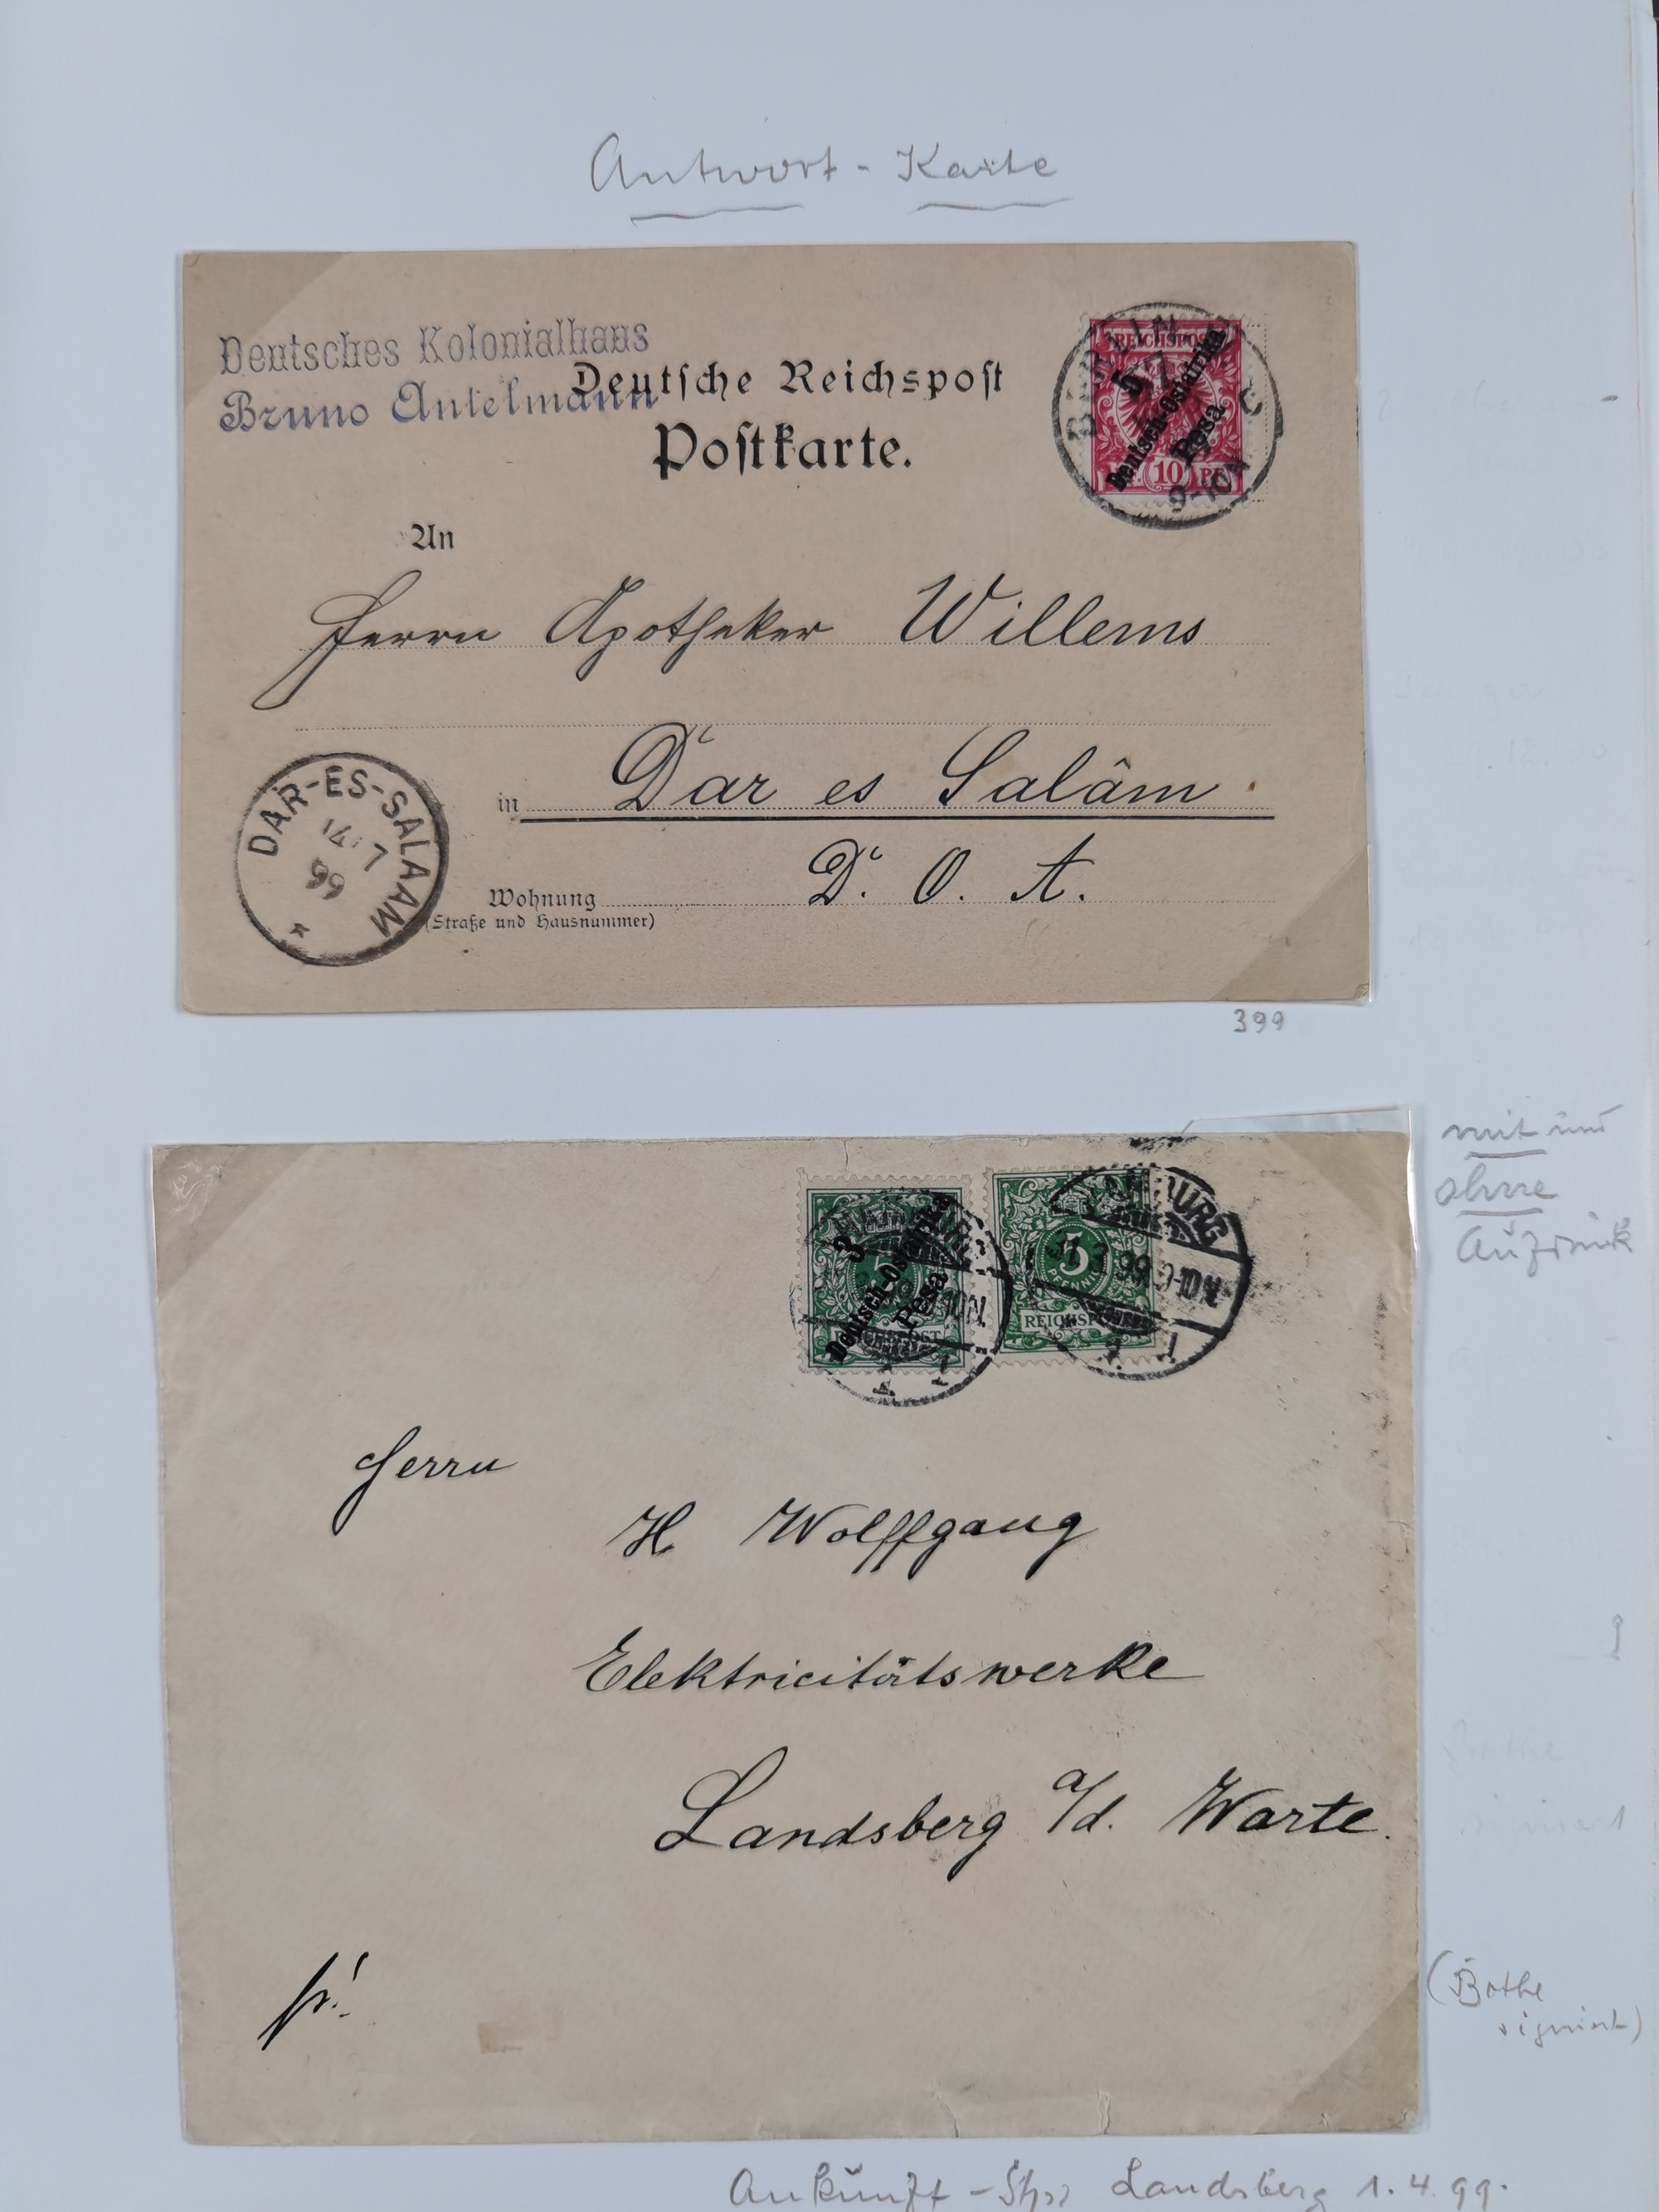 Antwort-Karte
Deutsches Kolonialhaus
Bruno Antelmann
Deutsche Reichspost
Postkarte.
BERLIN
C
9-10N
REICHSPOST
5
Deutsch-Ostafrika
Pesa
10 PF
An
Herrn Apotheker Willems
in Dar es Salâm.
D. O. A.
Wohnung
(Straße und Hausnummer)
DAR-ES-SALAAM
14.7
99
*
399
mit und
ohne
Aufdruck
3
Deutsch-Ostafrika
Pesa
REICHSPOST
HAMBURG
31.3.99 9-10N
5
PFENNIG
REICHSPOST
* 1
Herrn
H Wolffgang
Elektricitätswerke
Landsberg a/d. Warte.
fr!
(Bothe
signiert)
Ankunft-Landsberg 1.4.99.